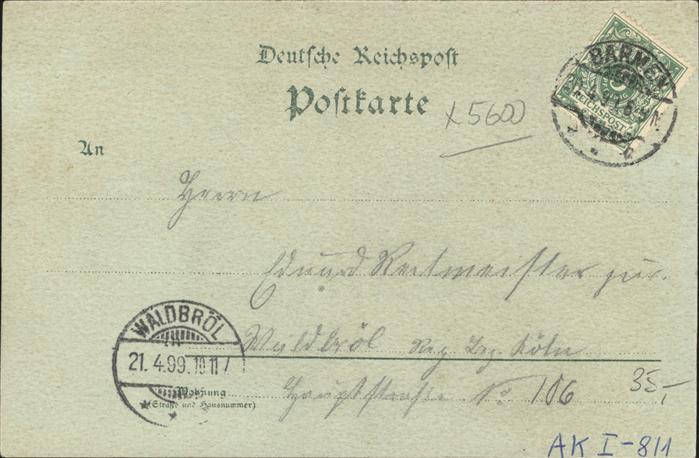 Deutsche Reichspost
Postkarte
x5600
BARMEN
REICHSPOST
An
Herrn
Eduard Reitmeister jur.
WALDBRÖL
21.4.99.10 11 V
Waldbröl Reg. Bez. Köln
Wohnung
(Straße und Hausnummer)
Hauptstraße No 106
35,-
AK I-811